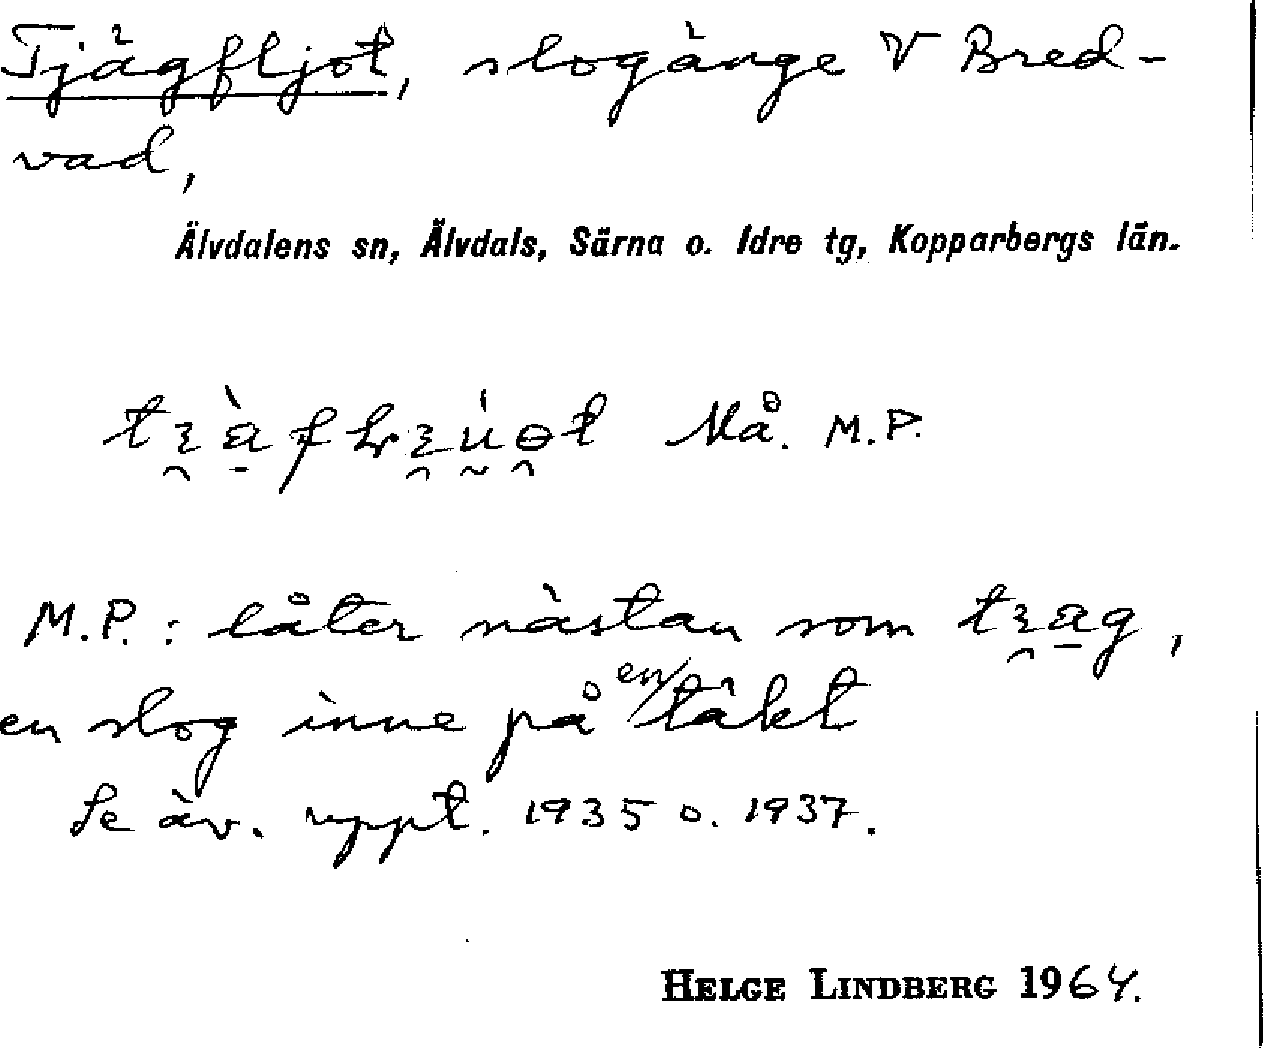 Tjägfljot, slogänge V Bred-
vad,
Älvdalens sn, Älvdals, Särna o. Idre tg, Kopparbergs län.
Må. M.P.
M.P. : låter nästan som
en slog inne på en täkt
Se äv. uppt. 1935 o. 1937.
HELGE LINDBERG 1964.